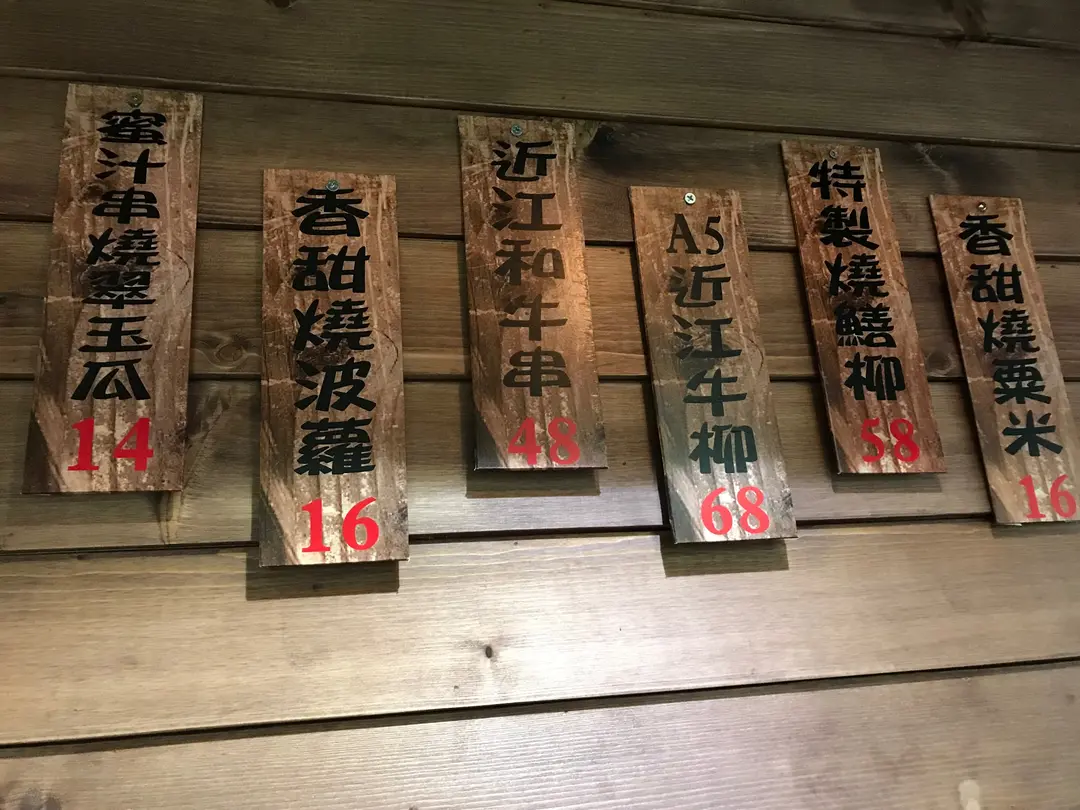 蜜汁串燒翠玉瓜
14
香甜燒波蘿
16
近江和牛串
48
A5
近江牛柳
68
特製燒鱔柳
58
香甜燒粟米
16